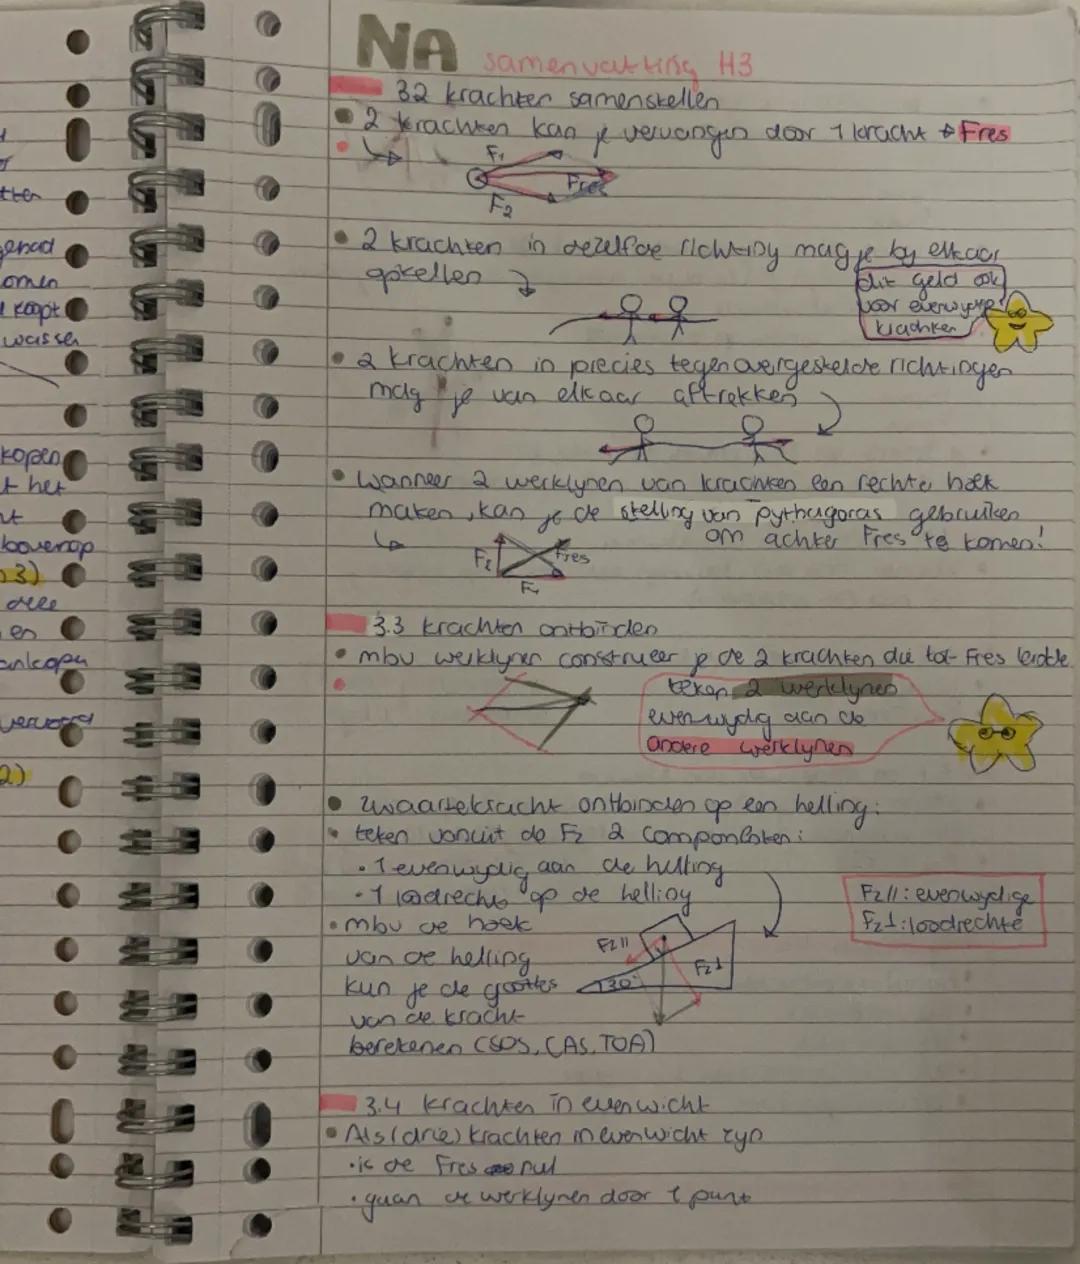 NA samenvatting H3
3.2 krachten samenstellen
2 krachten kan je vervangen door 1 kracht → Fres
F1
Fres
F2
2 krachten in dezelfde richting mag je by elkaar
optellen
dit geld ook
voor evenwydige
krachten
2 krachten in precies tegenovergestelde richtingen
mag je van elkaar aftrekken
Wanneer 2 werklynen van krachten een rechte hoek
maken, kan je de stelling van pythagoras gebruiken
om achter Fres te komen!
F2
Fres
F1
3.3 krachten ontbinden
mbv werklynen construeer je de 2 krachten die tot Fres leidde
teken 2 werklynen
evenwydig aan de
andere werklynen
zwaartekracht ontbinden op een helling:
teken vanuit de Fz 2 componenten:
1 evenwydig aan de helling
1 loodrecht op de helling
Fz//: evenwydige
Fz⊥: loodrechte
mbv de hoek
van de helling
kun je de groottes
van de kracht
berekenen (SOS, CAS, TOA)
Fz//
Fz⊥
30°
3.4 krachten in evenwicht
Als (drie) krachten in evenwicht zyn
is de Fres nul
gaan de werklynen door 1 punt